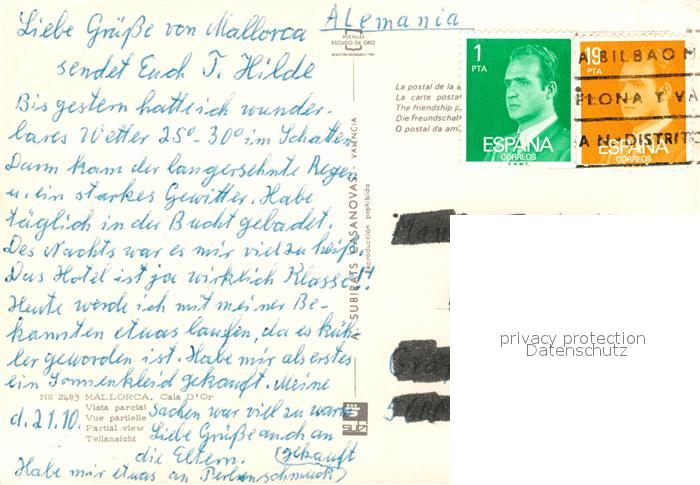 Alemania
Liebe Grüße von Mallorca
sendet Euch T. Hilde
Bis gestern hatte ich wunder-
bares Wetter 25°-30° im Schatten
Dann kam der langersehnte Regen
u. ein starkes Gewitter. Habe
täglich in der Bucht gebadet.
Des Nachts war es mir viel zu heiß.
Das Hotel ist ja wirklich Klasse!!
Heute werde ich mit meiner Be-
kannten etwas laufen, da es küh-
ler geworden ist. Habe mir als erstes
ein Sonnenkleid gekauft. Meine
Sachen war viel zu warm
d. 21.10.
Liebe Grüße auch an
die Eltern. (gekauft
Habe mir etwas an Perlenschmuck)
Nº 2483 MALLORCA. Cala D'Or
Vista parcial
Vue partielle
Partial view
Teilansicht
POSTALES
ESCUDO DE ORO
A. SUBIRATS CASANOVAS - VALENCIA
reproducción prohibida
La postal de la
La carte postal
The friendship p
Die Freundschaft
O postal da am
1
PTA
ESPAÑA
CORREOS
F.N.M.T.
19
PTA
ESPAÑA
CORREOS
A BILBAO
PLONA Y VA
AN-DISTRITO
privacy protection
Datenschutz